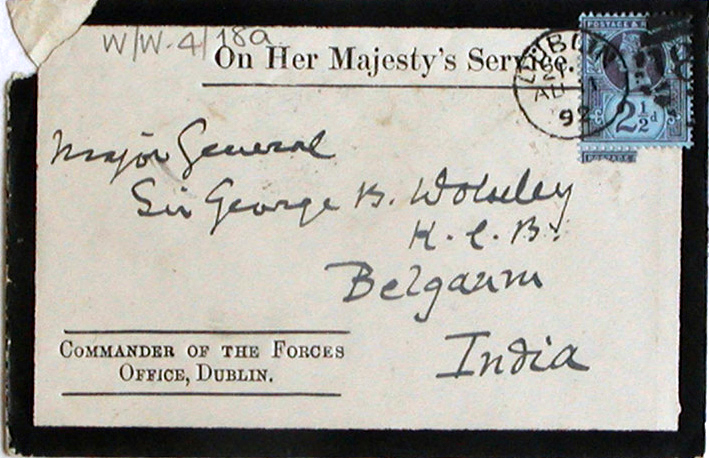 W/W.4/18a
On Her Majesty's Service.
POSTAGE &
2½d
AU 1
92
Major General
Sir George B. Wolseley
K.C.B.
Belgaum
India
COMMANDER OF THE FORCES
OFFICE, DUBLIN.
POSTAGE